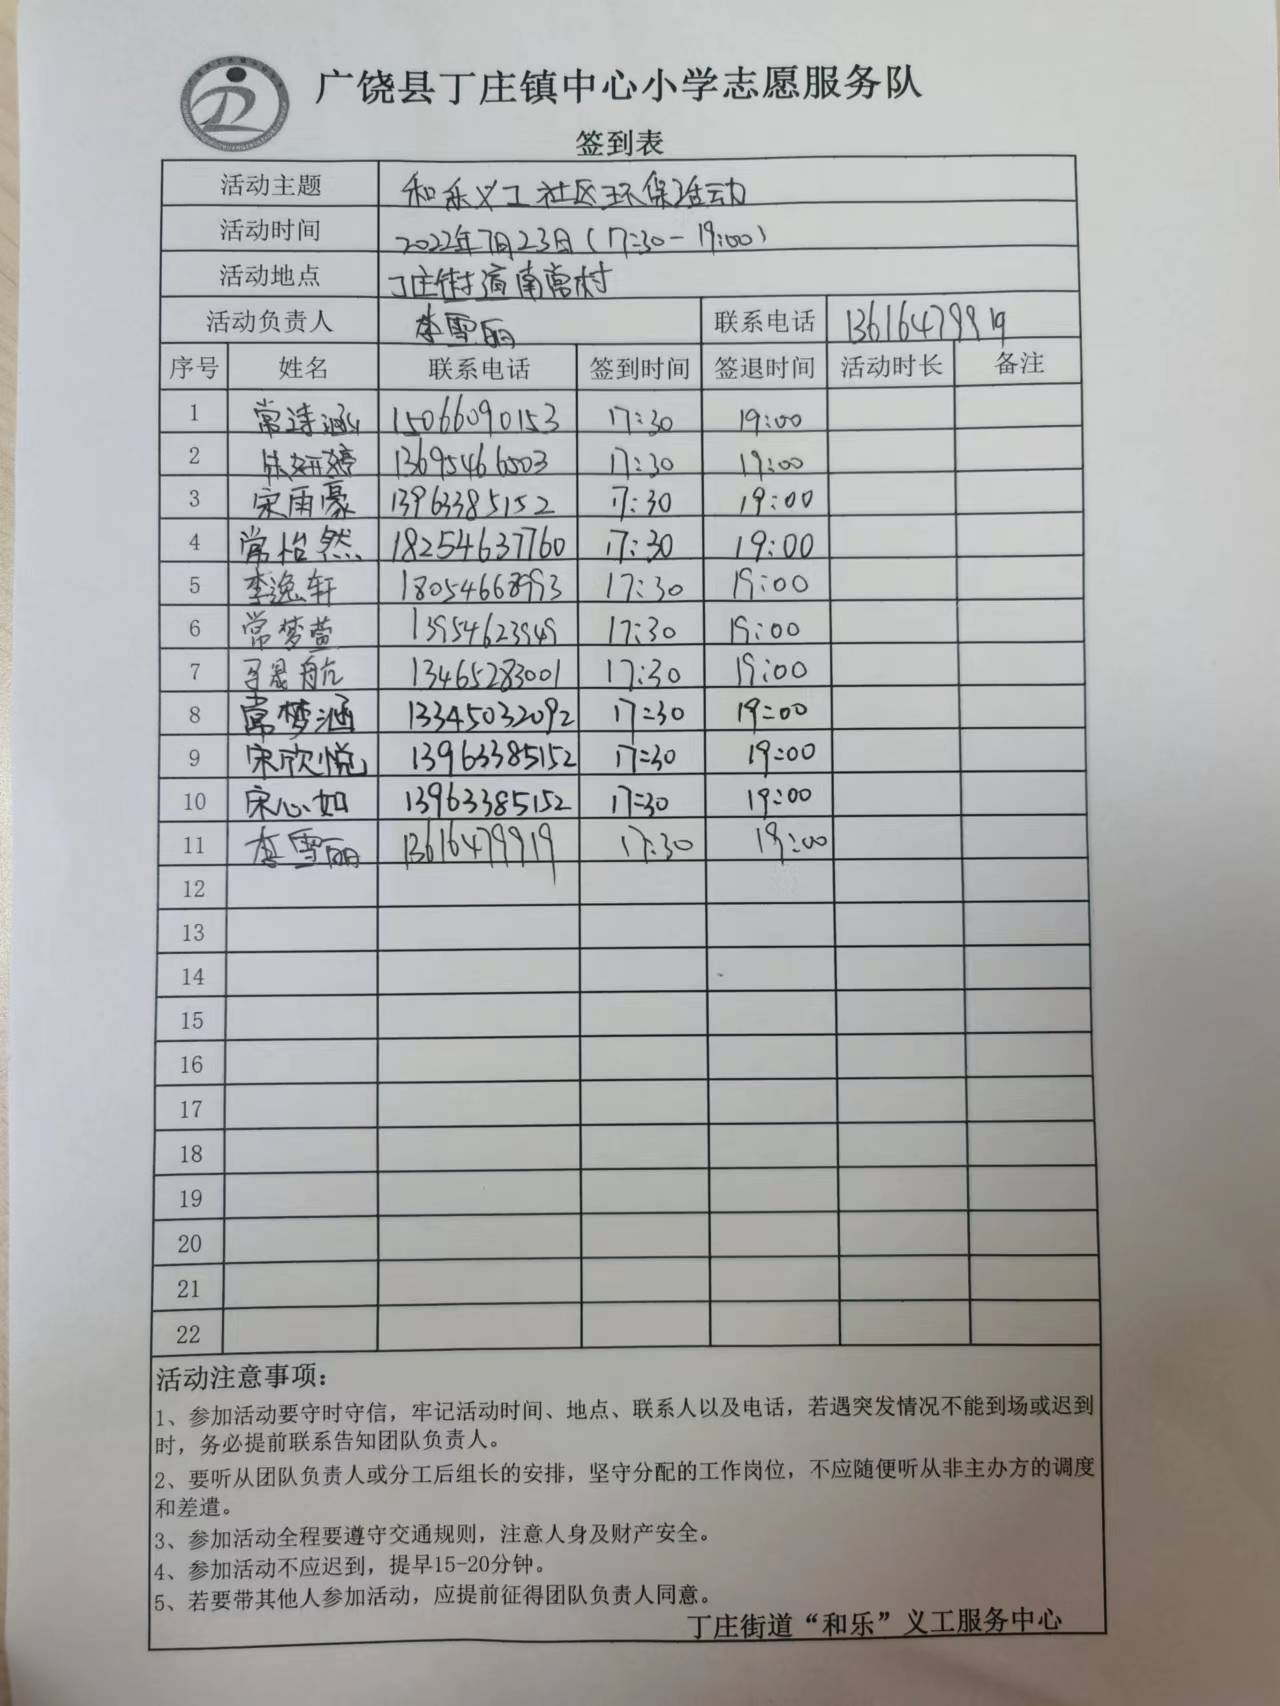 广饶县丁庄镇中心小学志愿服务队
签到表
活动主题 和乐义工社区环保活动
活动时间 2022年7月23日(17:30-19:00)
活动地点 丁庄街道南常村
活动负责人 李雪丽 联系电话 13616479919
序号 姓名 联系电话 签到时间 签退时间 活动时长 备注
1 常诗涵 15066090153 17:30 19:00
2 妍婷 13695466503 17:30 19:00
3 宋雨豪 13963385152 17:30 19:00
4 常怡然 18254637760 17:30 19:00
5 李逸轩 18054668993 17:30 19:00
6 常梦萱 13954623949 17:30 19:00
7 晟航 13465283001 17:30 19:00
8 常梦涵 13345032092 17:30 19:00
9 宋欣悦 13963385152 17:30 19:00
10 宋心如 13963385152 17:30 19:00
11 李雪丽 13616479919 17:30 19:00
12
13
14
15
16
17
18
19
20
21
22
活动注意事项：
1、参加活动要守时守信，牢记活动时间、地点、联系人以及电话，若遇突发情况不能到场或迟到
时，务必提前联系告知团队负责人。
2、要听从团队负责人或分工后组长的安排，坚守分配的工作岗位，不应随便听从非主办方的调度
和差遣。
3、参加活动全程要遵守交通规则，注意人身及财产安全。
4、参加活动不应迟到，提早15-20分钟。
5、若要带其他人参加活动，应提前征得团队负责人同意。
丁庄街道“和乐”义工服务中心